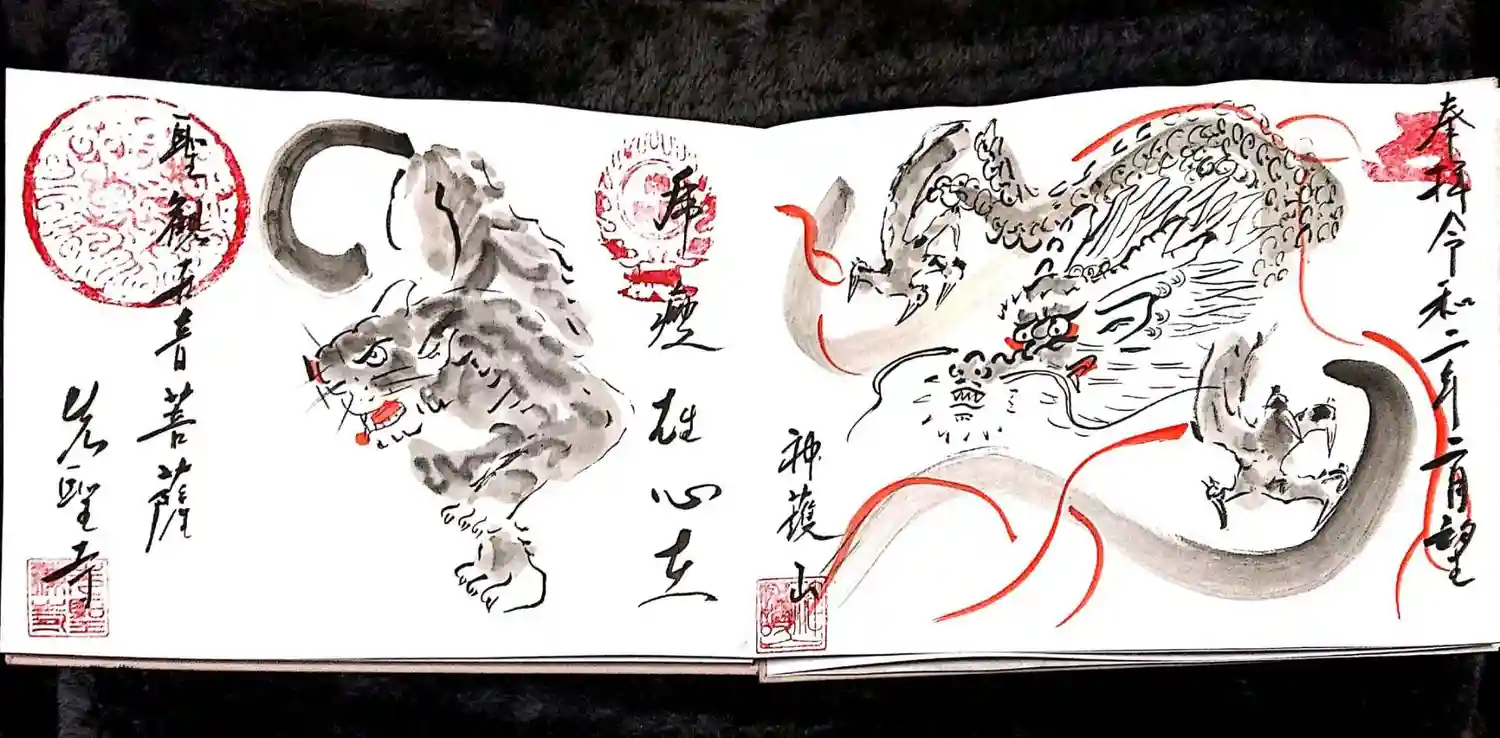 奉拝令和二年二月望
神護山
虎瘦雄心在
聖観世音菩薩
光聖寺